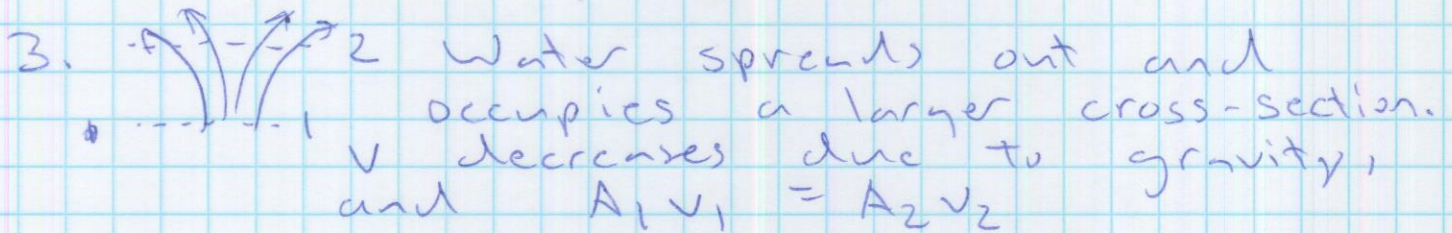 3. 2 Water spreads out and
occupies a larger cross-section.
1
v decreases due to gravity,
and A₁v₁ = A₂v₂